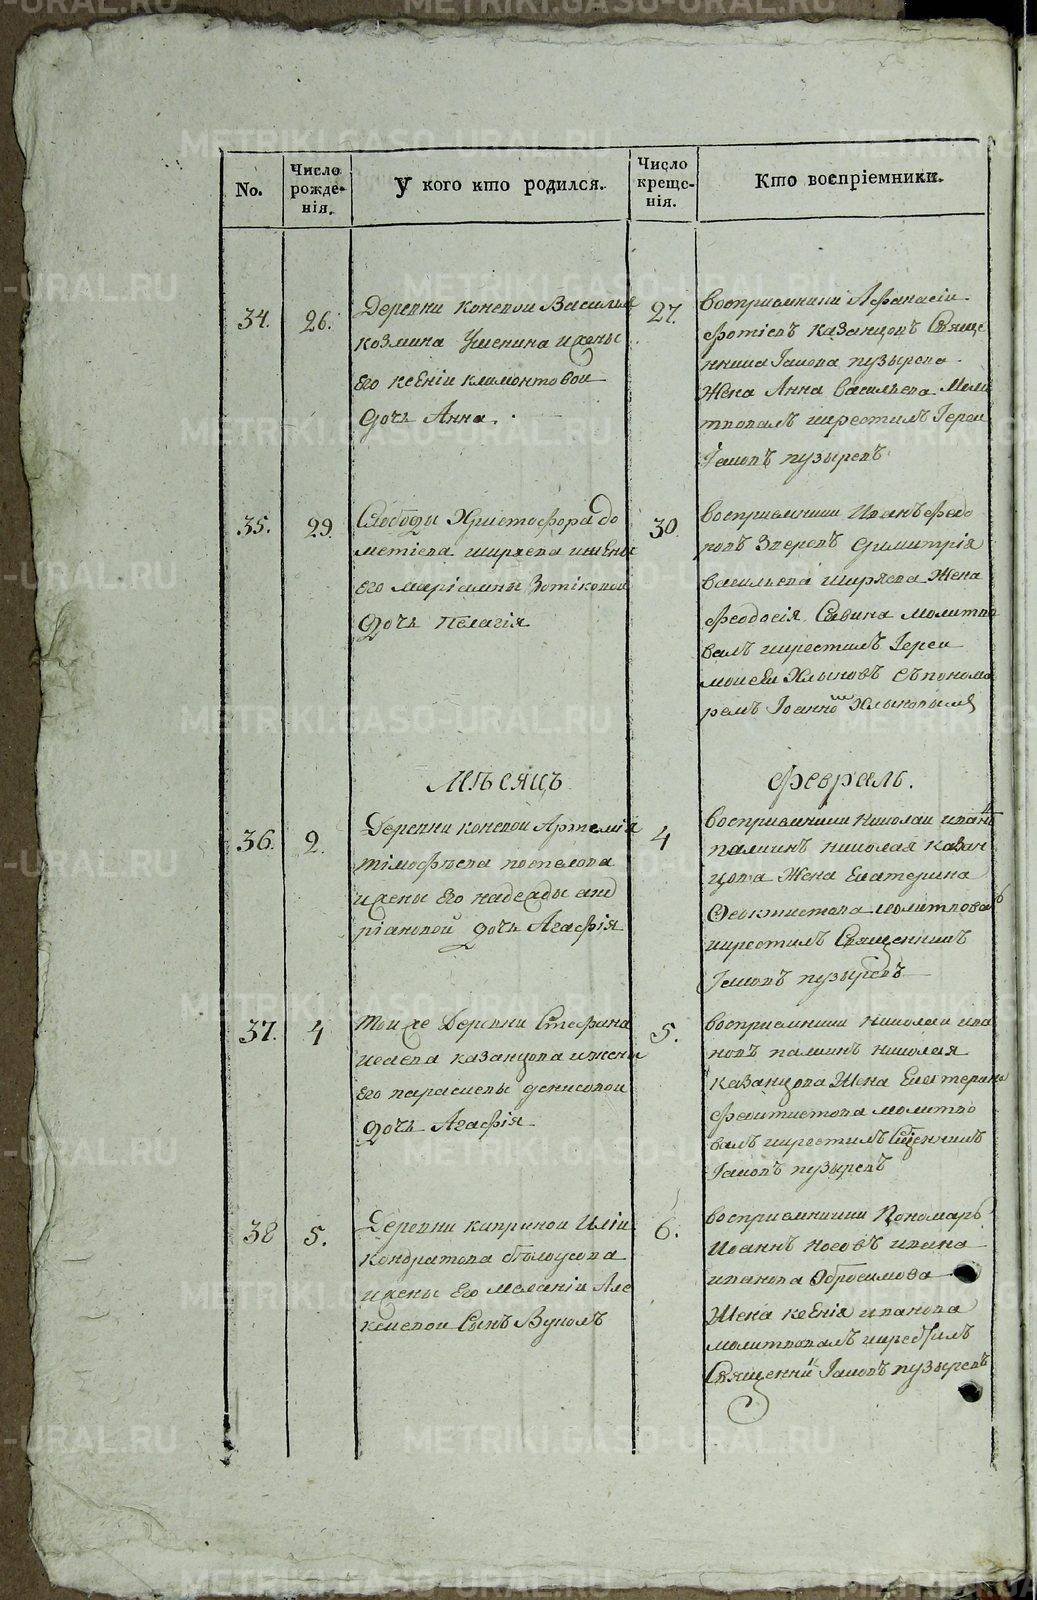 No.
Число рожде-нія.
У кого кто родился.
Число креще-нія.
Кто воспріемники.
34.
26.
Деревни коневой Василья
козмина Ушенина и жены
его ксеніи климонтовой
дочь Анна.
27.
восприемники Афанасіи
Фотіевъ казанцовъ Свяще
нника Іакова пузырева
Жена Анна васильева моли
твовалъ икрестилъ Іереи
Іаковъ пузыревъ
35.
29.
Слободы Христофора До
метіева ширяева ижены
его маріамны Зотіковой
Дочь пелагія
30.
восприемники Иванъ федо
ровъ Зверевъ Димитрія
васильева ширяева Жена
Феодосія Савина молитво
валъ икрестилъ Іереи
моисеи Хлыновъ съ понома
ремъ Іоанномъ Хлыновымъ
Мѣсяцъ
Февраль.
36.
2.
Деревни коневой Артемія
тімофѣева поспелова
и жены Его надежды анд
ріановой дочь Агафія
4
восприемники николаи иван
палкинъ николая казан
цова Жена Екатерина
Феоктистова молитвовалъ
икрестилъ Священникъ
Іаковъ пузыревъ
37.
4
той же Деревни Стефана
исаева казанцова ижены
его парасковы денисовой
дочь Агафія
5.
восприемники николаи ива
новъ палкинъ николая
казанцова Жена Екатерина
феоктистова молитво
валъ икрестилъ Сщенникъ
Іаковъ пузыревъ
38
5.
Деревни киприной Иліи
кондратова бѣлоусова
и жены Его меланіи Але
ксиевой Сынъ Вуколъ
6.
восприемники Пономарь
Иоаннъ носовъ ивана
иванова Обросимова
Жена ксенія иванова
молитвовалъ икрестилъ
Священникъ Іаковъ пузыревъ
METRIKI.GASO-URAL.RU